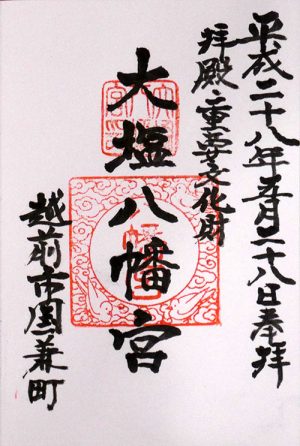 平成二十八年五月二十八日奉拝
拝殿・重要文化財
大塩八幡宮
越前市国兼町